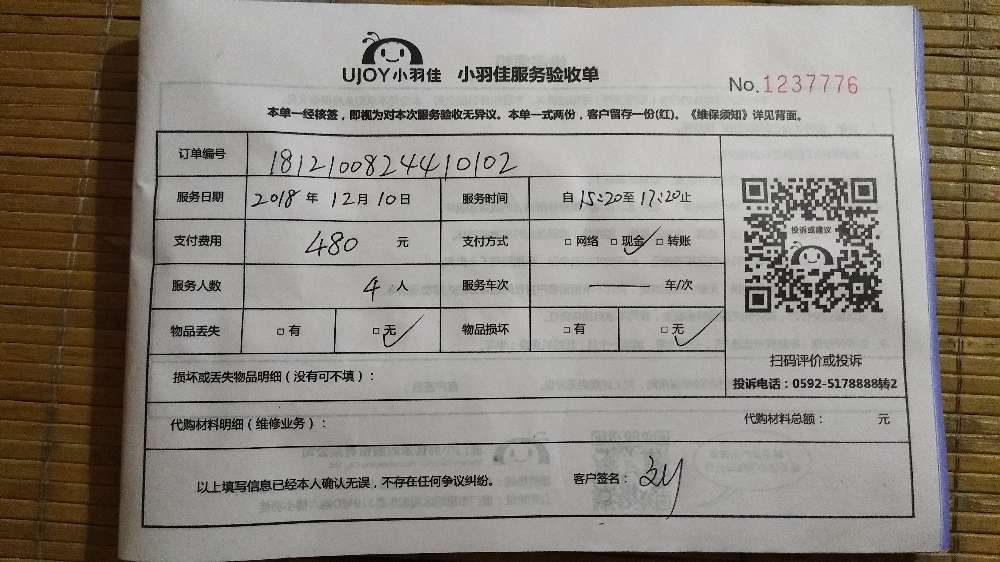 UJOY小羽佳 小羽佳服务验收单
No.1237776
本单一经核签，即视为对本次服务验收无异议。本单一式两份，客户留存一份(红)。《维保须知》详见背面。
订单编号 1812100824410102
服务日期 2018 年 12 月 10 日 服务时间 自 15:20 至 17:20 止
支付费用 480 元 支付方式 □ 网络 □ 现金 ✓ □ 转账
服务人数 4 人 服务车次 — 车/次
物品丢失 □ 有 □ 无 ✓ 物品损坏 □ 有 □ 无 ✓
投诉或建议
扫码评价或投诉
投诉电话：0592-5178888转2
损坏或丢失物品明细（没有可不填）：
代购材料明细（维修业务）： 代购材料总额： 元
以上填写信息已经本人确认无误，不存在任何争议纠纷。 客户签名：